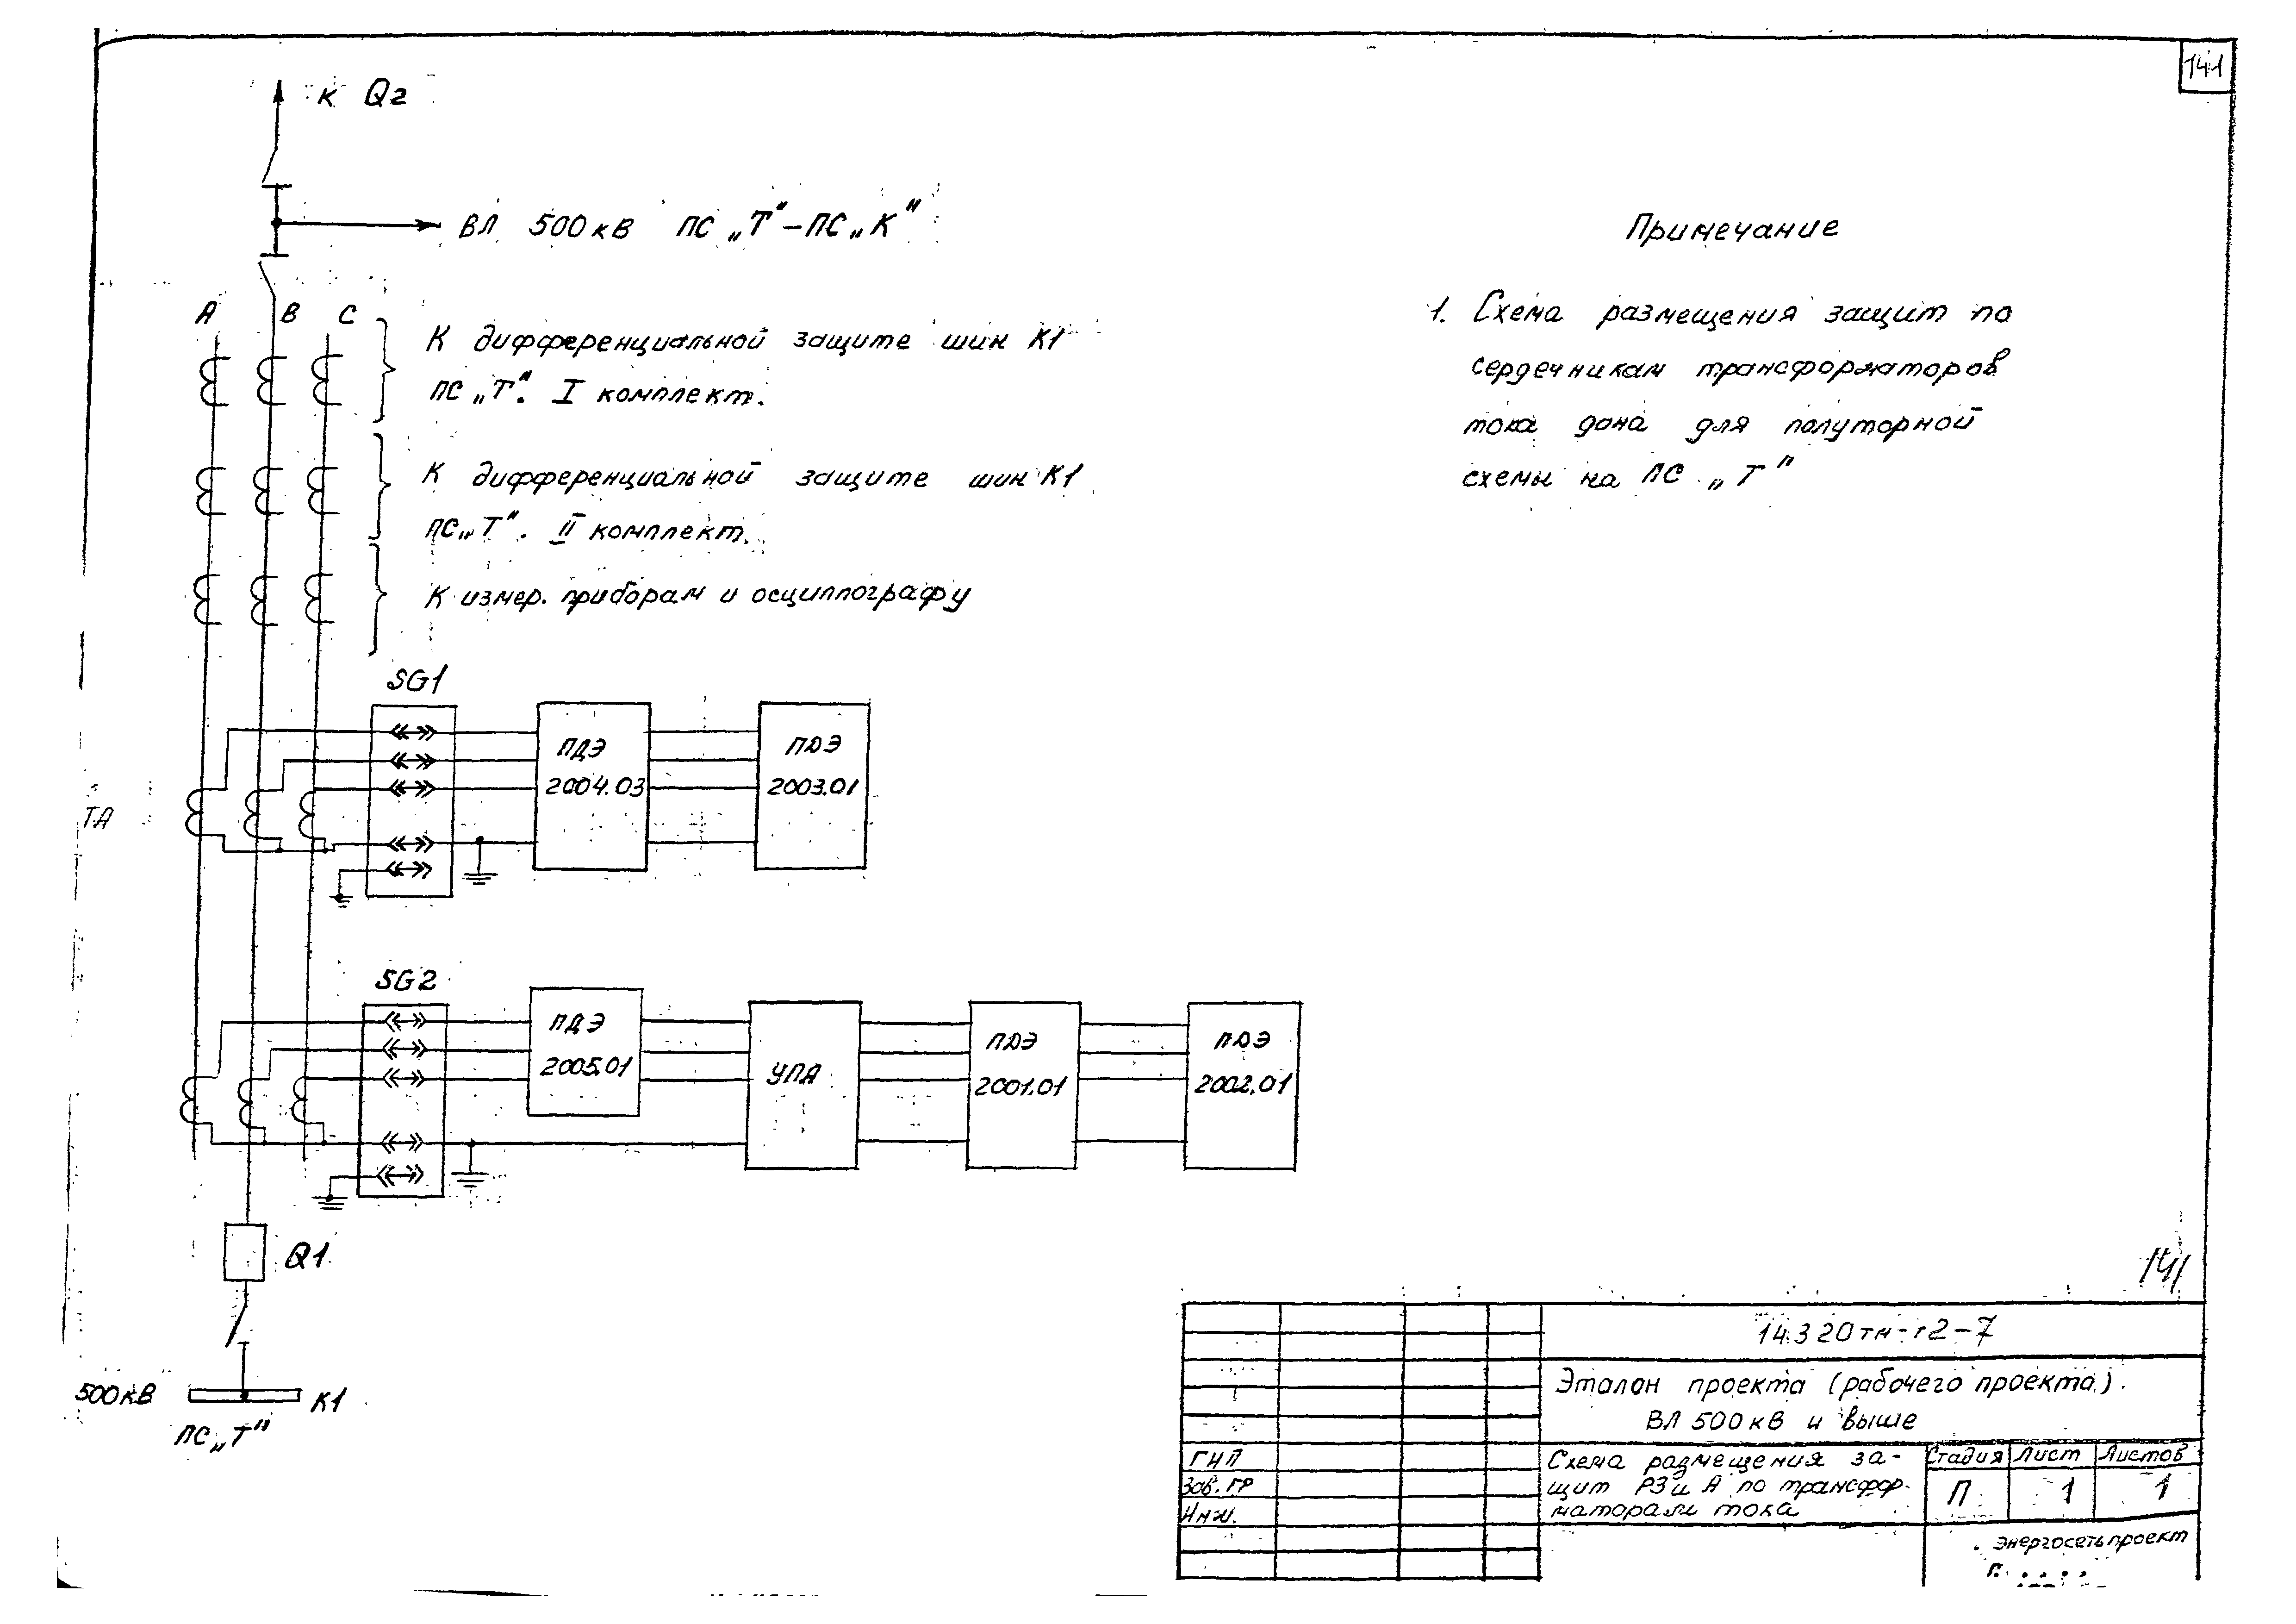 141
К Q2
ВЛ 500кВ ПС „Т"-ПС„К"
Примечание
А В С
К дифференциальной защите шин К1
ПС „Т". I комплект.
1. Схема размещения защит по
сердечникам трансформаторов
тока дана для полуторной
схемы на ПС „Т"
К дифференциальной защите шин К1
ПС„Т". II комплект.
К измер. приборам и осциллографу
SG1
ПДЭ
2004.03
ПДЭ
2003.01
ТА
SG2
ПДЭ
2005.01
УПА
ПДЭ
2001.01
ПДЭ
2002.01
Q1
500кВ
К1
ПС„Т"
141
14320тм-т2-7
Эталон проекта (рабочего проекта).
ВЛ 500кВ и выше
ГИП
Зав. ГР
Инж.
Схема размещения за-
щит РЗ и А по трансфор-
маторам тока
Стадия Лист Листов
П 1 1
Энергосетьпроект